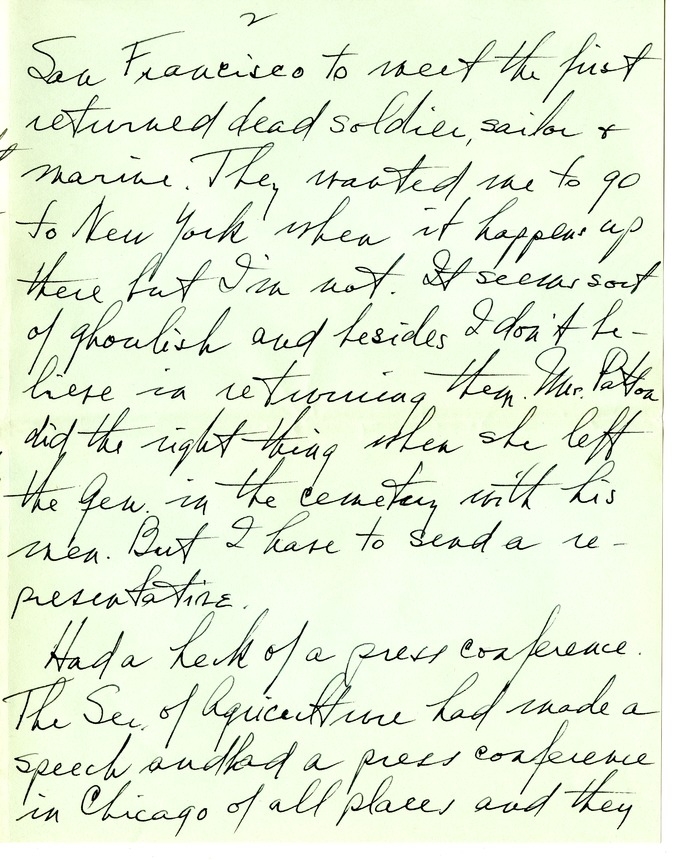 2
San Francisco to meet the first
returned dead soldier, sailor &
marine. They wanted me to go
to New York when it happens up
there but I'm not. It seems sort
of ghoulish and besides I don't be-
lieve in returning them. Mrs. Patton
did the right thing when she left
the Gen. in the cemetery with his
men. But I have to send a re-
presentative.
Had a heck of a press conference.
The Sec. of Agriculture had made a
speech and had a press conference
in Chicago of all places and they